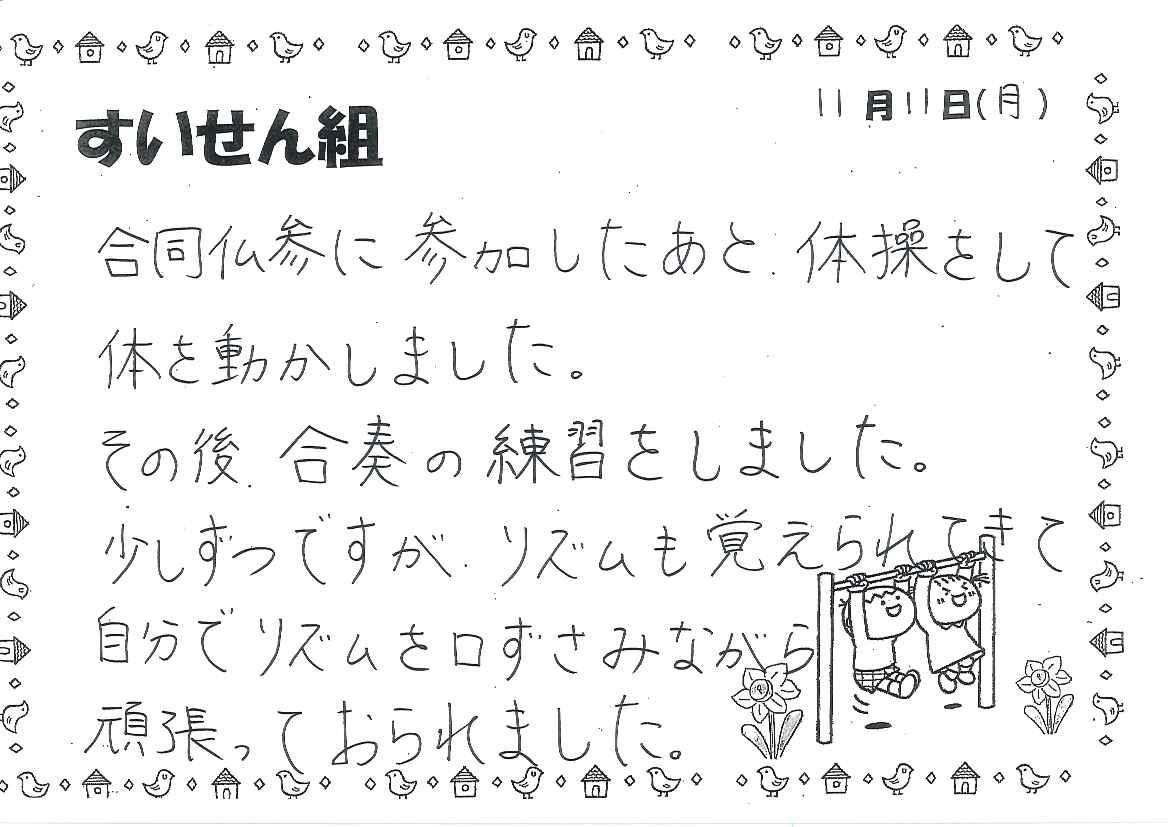 すいせん組
11月11日(月)
合同仏参に参加したあと、体操をして
体を動かしました。
その後、合奏の練習をしました。
少しずつですが、リズムも覚えられてきて
自分でリズムを口ずさみながら
頑張っておられました。